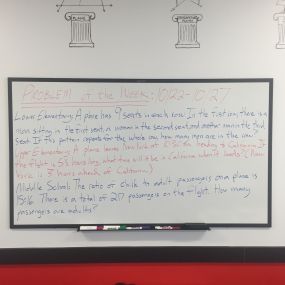 PROBLEM of the WEEK: 10/22-10/27
Lower Elementary: A plane has 9 seats in each row. In the first row, there is a
man sitting in the first seat, a woman in the second seat and another man in the third
seat. If this pattern repeats for the whole row, how many men are in the row?
Upper Elementary: A plane leaves New York at 10:30 am heading to California. If
the flight is 5½ hours long, what time will it be in California when it lands? (New
York is 3 hours ahead of California)
Middle School: The ratio of child to adult passengers on a plane is
15:16. There is a total of 217 passengers on the flight. How many
passengers are adults?